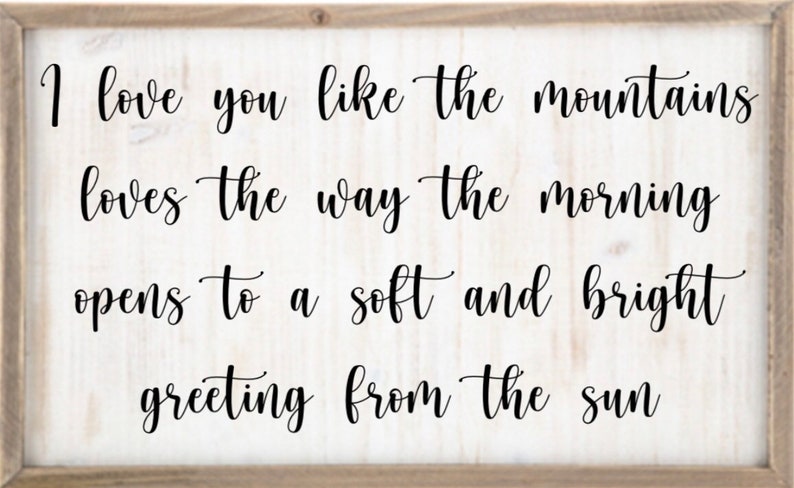 I love you like the mountains
loves the way the morning
opens to a soft and bright
greeting from the sun